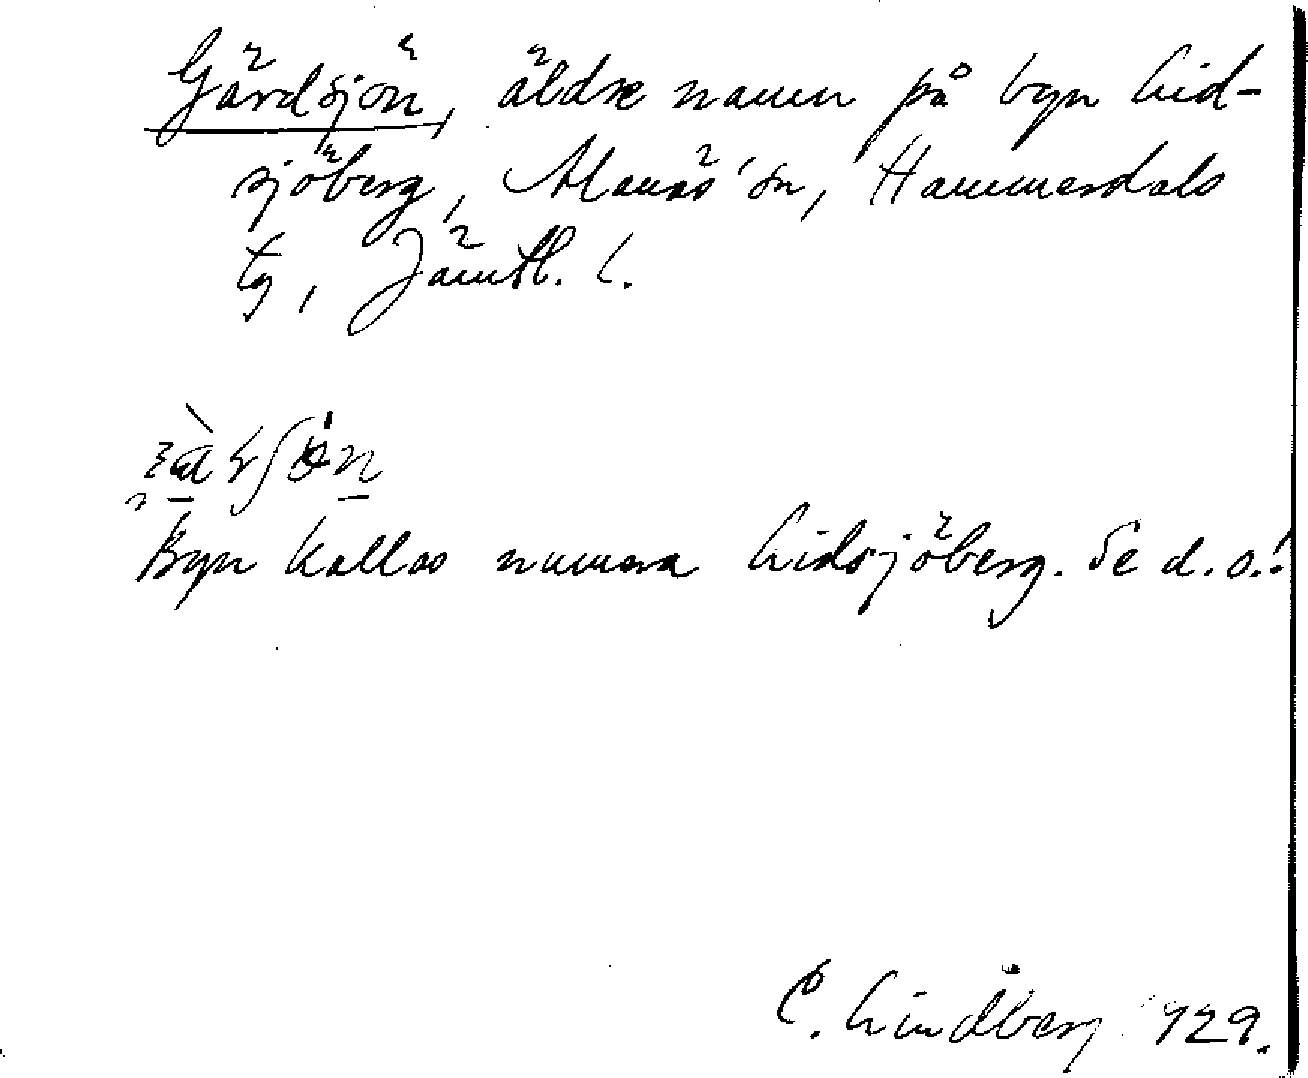 Gärdsjön, äldre namn på byn Lid-
sjöberg, Alanäs sn, Hammerdals
tg, Jämtl. l.
Byn kallas numera Lidsjöberg. Se d. o.!
C. Lindberg 1929.